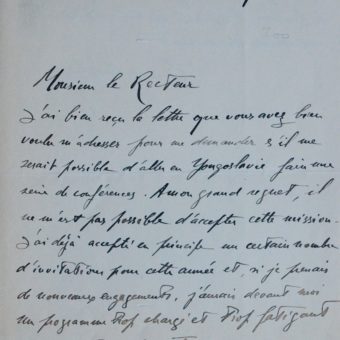 Monsieur le Recteur
J'ai bien reçu la lettre que vous avez bien
voulu m'adresser pour me demander s'il me
serait possible d'aller en Yougoslavie faire une
série de conférences. A mon grand regret, il
ne m'est pas possible d'accepter cette mission.
J'ai déjà accepté en principe un certain nombre
d'invitations pour cette année et, si je prenais
de nouveaux engagements, j'aurais devant moi
un programme trop chargé et trop fatigant